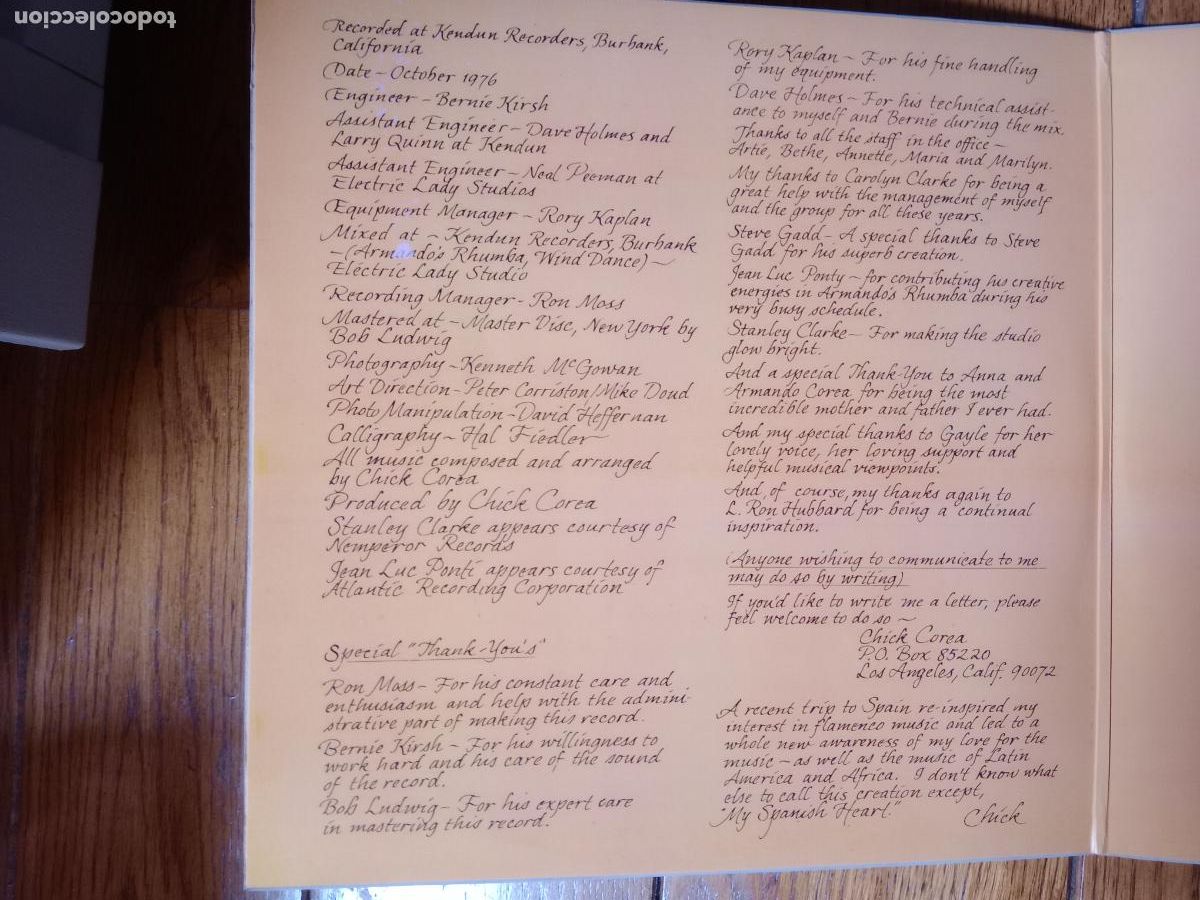 todocoleccion
Recorded at Kendun Recorders, Burbank,
California
Date – October 1976
Engineer – Bernie Kirsh
Assistant Engineer – Dave Holmes and
Larry Quinn at Kendun
Assistant Engineer – Neal Peeman at
Electric Lady Studios
Equipment Manager – Rory Kaplan
Mixed at – Kendun Recorders, Burbank
– (Armando's Rhumba, Wind Dance) –
Electric Lady Studio
Recording Manager – Ron Moss
Mastered at – Master Disc, New York by
Bob Ludwig
Photography – Kenneth McGowan
Art Direction – Peter Corriston/Mike Doud
Photo Manipulation – David Heffernan
Calligraphy – Hal Fiedler
All music composed and arranged
by Chick Corea
Produced by Chick Corea
Stanley Clarke appears courtesy of
Nemperor Records
Jean Luc Ponti appears courtesy of
Atlantic Recording Corporation
Special "Thank-You's"
Ron Moss – For his constant care and
enthusiasm and help with the admini-
strative part of making this record.
Bernie Kirsh – For his willingness to
work hard and his care of the sound
of the record.
Bob Ludwig – For his expert care
in mastering this record.
Rory Kaplan – For his fine handling
of my equipment.
Dave Holmes – For his technical assist-
ance to myself and Bernie during the mix.
Thanks to all the staff in the office –
Artie, Bethe, Annette, Maria and Marilyn.
My thanks to Carolyn Clarke for being a
great help with the management of myself
and the group for all these years.
Steve Gadd – A special thanks to Steve
Gadd for his superb creation.
Jean Luc Ponty – for contributing his creative
energies in Armando's Rhumba during his
very busy schedule.
Stanley Clarke – For making the studio
glow bright.
And a special Thank-You to Anna and
Armando Corea for being the most
incredible mother and father I ever had.
And my special thanks to Gayle for her
lovely voice, her loving support and
helpful musical viewpoints.
And, of course, my thanks again to
L. Ron Hubbard for being a continual
inspiration.
(Anyone wishing to communicate to me
may do so by writing)
If you'd like to write me a letter, please
feel welcome to do so –
Chick Corea
P.O. Box 85220
Los Angeles, Calif. 90072
A recent trip to Spain re-inspired my
interest in flamenco music and led to a
whole new awareness of my love for the
music – as well as the music of Latin
America and Africa. I don't know what
else to call this creation except,
"My Spanish Heart."
Chick